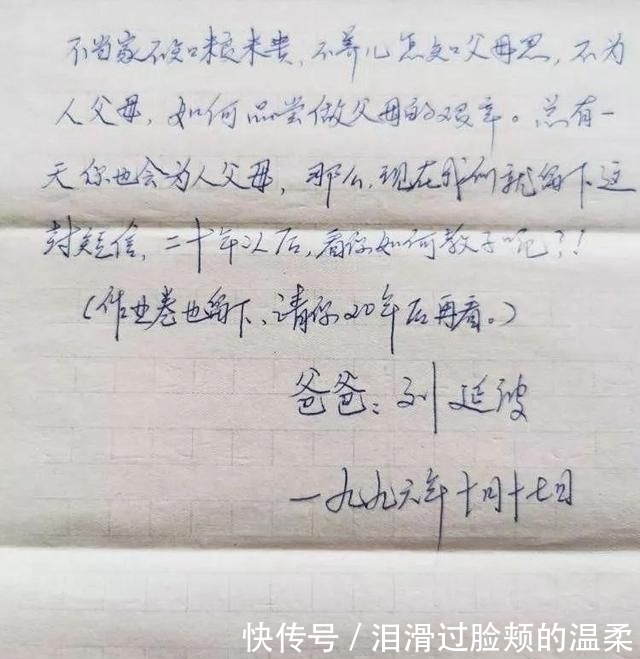 不当家不知口粮米贵，不养儿怎知父母恩，不为
人父母，如何品尝做父母的艰辛。总有一
天你也会为人父母，那么，现在我们就留下这
封短信，二十年以后，看你如何教子呢？！
（作业卷也留下、请你20年后再看。）
爸爸：刘延波
一九九六年十月十七日
快传号／泪滑过脸颊的温柔